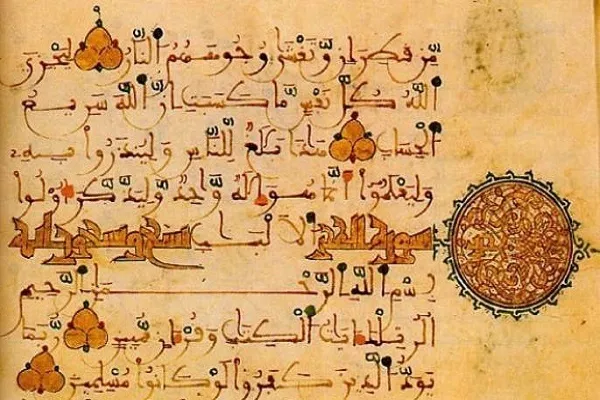 مِّن قَطِرَانٍ وَّتَغْشَىٰ وُجُوهَهُمُ النَّارُ لِيَجْزِيَ
اللَّهُ كُلَّ نَفْسٍ مَّا كَسَبَتْ إِنَّ اللَّهَ سَرِيعُ
الْحِسَابِ هَٰذَا بَلَٰغٌ لِّلنَّاسِ وَلِيُنذَرُوا بِهِ
وَلِيَعْلَمُوا أَنَّمَا هُوَ إِلَٰهٌ وَّاحِدٌ وَلِيَذَّكَّرَ أُولُوا
سورة الحجر الْأَلْبَٰبِ تسع وتسعون اية
بِسْمِ اللَّهِ الرَّحْمَٰنِ الرَّحِيمِ
الر تِلْكَ ءَايَٰتُ الْكِتَٰبِ وَقُرْءَانٍ مُّبِينٍ رُبَمَا
يَوَدُّ الَّذِينَ كَفَرُوا لَوْ كَانُوا مُسْلِمِينَ